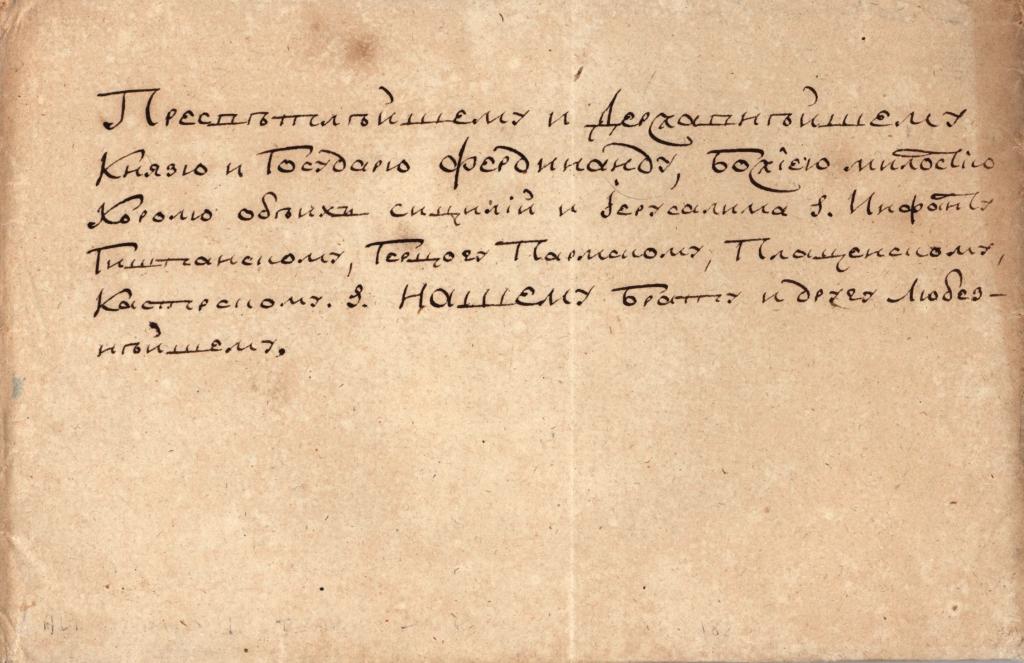 Пресвѣтлѣйшему и Державнѣйшему
Князю и Государю Фердинанду, Божіею милостію
Королю обѣихъ сицилій и Іерусалима ꙃ. Инфанту
Гишпанскому, Герцогу Пармскому, Плаценскому,
Кастрескому. ꙃ. НАШЕМУ Брату и другу Любез-
нѣйшему.